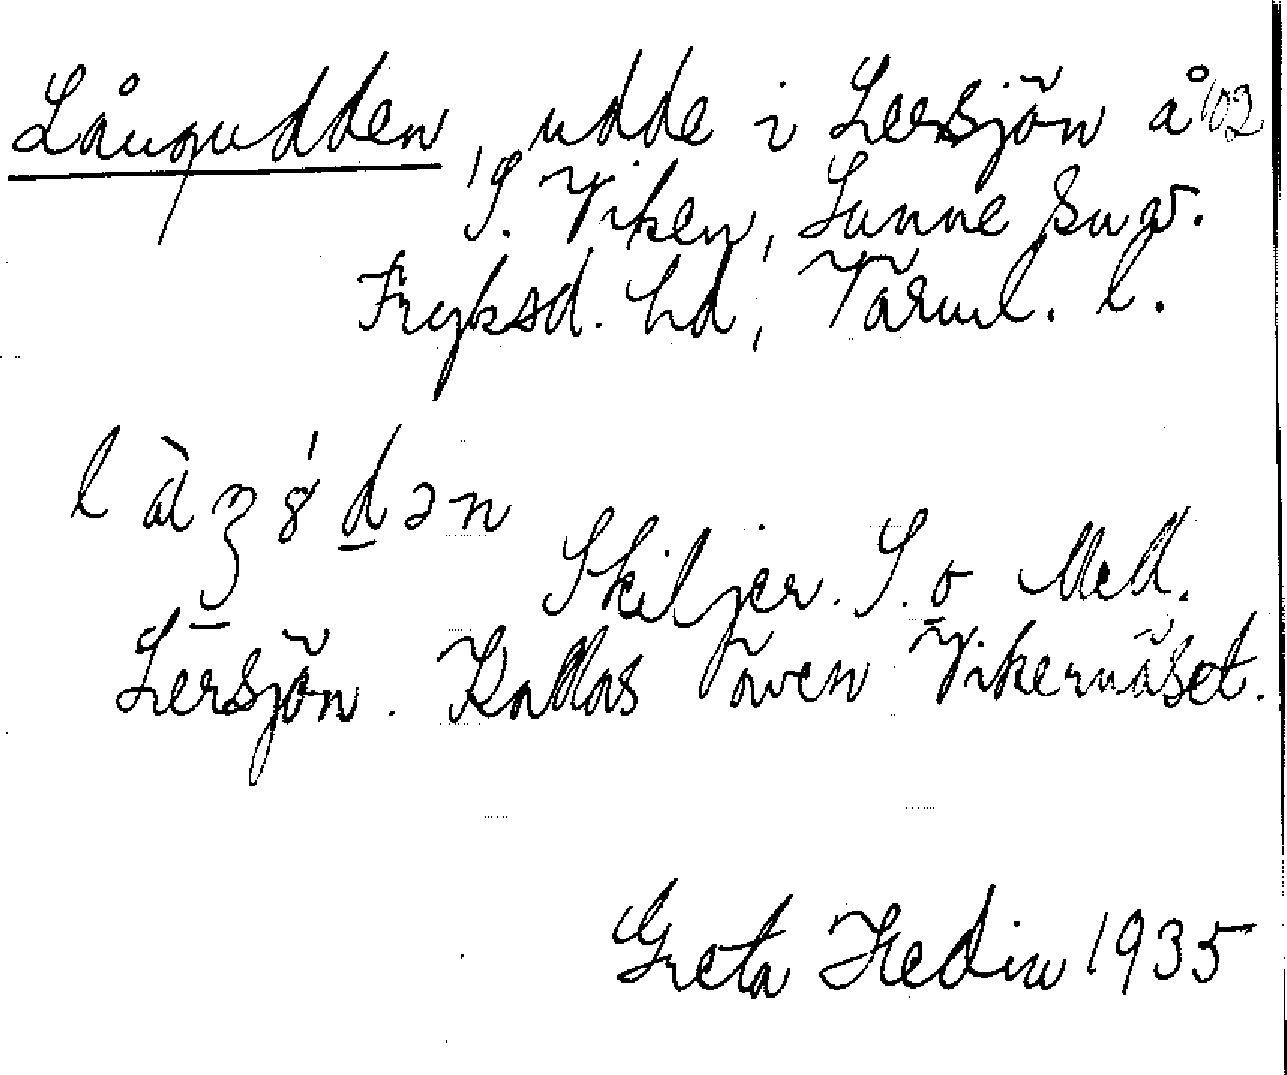 Långudden, udde i Lersjön å 102
S. Viken, Sunne snv.
Fryksd. hd, Värml. l.
Skiljer. S. o Mell.
Lersjön. Kallas även Vikernäset.
Greta Hedin 1935